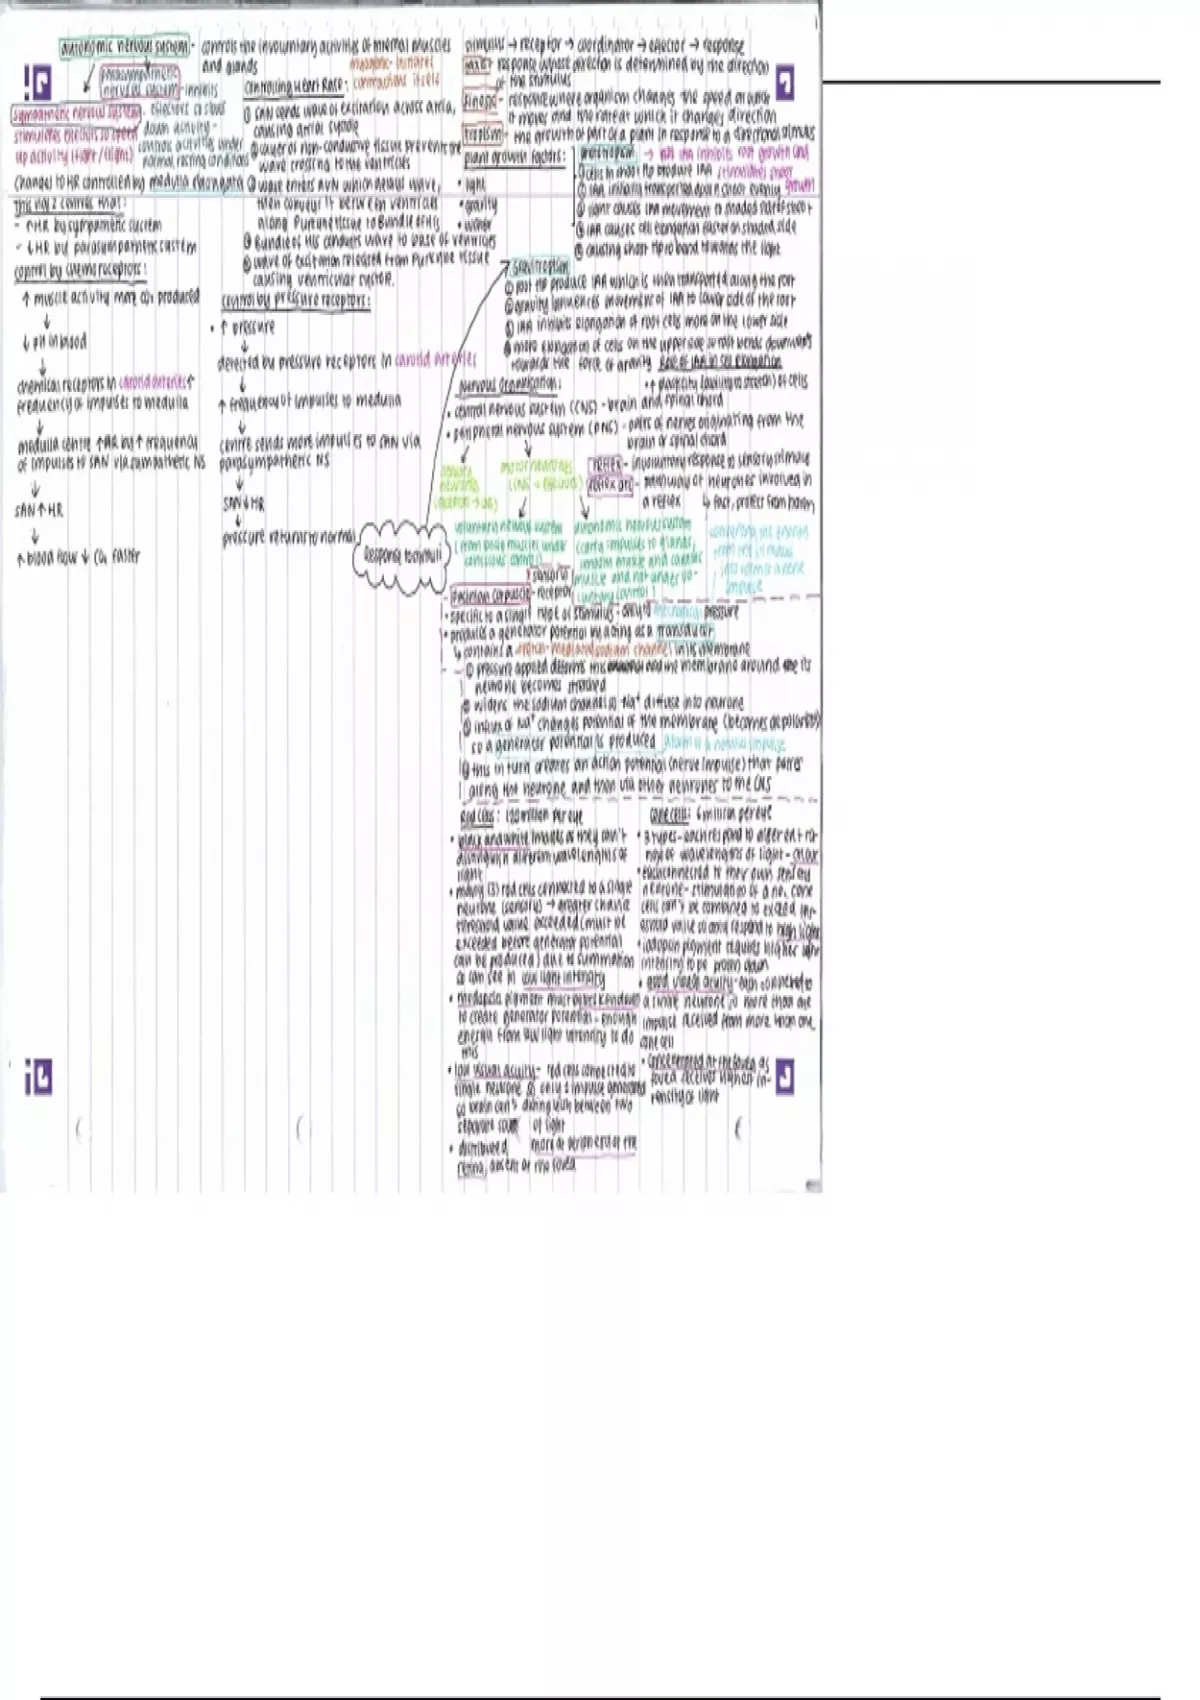 autonomic nervous system - controls the involuntary activities of internal muscles
and glands
parasympathetic
nervous system - inhibits
effectors to slow
down activity -
controls activities under
normal resting conditions
sympathetic nervous system -
stimulates effectors to speed
up activity (fight/flight)
changes to HR controlled by medulla oblongata
This has 2 centres that:
- ↑HR by sympathetic system
- ↓HR by parasympathetic system
control by chemoreceptors:
↑ muscle activity more CO₂ produced
↓
↓ pH in blood
↓
chemical receptors in carotid arteries ↑
frequency of impulses to medulla
↓
medulla centre ↑HR by ↑ frequency
of impulses to SAN via sympathetic NS
↓
SAN ↑ HR
↓
↑ blood flow ↓ CO₂ faster
myogenic - initiates
contractions itself
Controlling Heart Rate:
① SAN sends wave of excitation across atria,
causing atrial systole
② layer of non-conductive tissue prevents the
wave crossing to the ventricles
③ wave enters AVN which delays wave,
then conveys it between ventricles
along Purkyne tissue to Bundle of His
④ Bundle of His conducts wave to base of ventricles
⑤ wave of excitation released from Purkyne tissue
causing ventricular systole.
control by pressure receptors:
• ↑ pressure
↓
detected by pressure receptors in carotid arteries
↓
↑ frequency of impulses to medulla
↓
centre sends more impulses to SAN via
parasympathetic NS
↓
SAN ↓ HR
↓
pressure returns to normal
Response to stimuli
stimulus → receptor → coordinator → effector → response
taxis - response whose direction is determined by the direction
of the stimulus
kinesis - response where organism changes the speed at which
it moves and the rate at which it changes direction
tropism - the growth of part of a plant in response to a directional stimulus
plant growth factors:
• light
• gravity
• water
phototropism → IAA inhibits root growth and
stimulates shoot
growth
① cells in shoot tip produce IAA
② IAA initially transported down shoot evenly
③ light causes IAA movement to shaded side of shoot
④ IAA causes cell elongation faster on shaded side
⑤ causing shoot tip to bend towards the light
gravitropism
① root tip produce IAA which is then transported along the root
② gravity influences movement of IAA to lower side of the root
③ IAA inhibits elongation of root cells more on the lower side
④ more elongation of cells on the upper side so root bends downwards
towards the force of gravity
Role of IAA in cell elongation
• ↑ plasticity (ability to stretch) of cells
Nervous Organisation:
• central nervous system (CNS) - brain and spinal chord
• peripheral nervous system (PNS) - pairs of nerves originating from the
brain or spinal chord
sensory
neurones
motor neurones
(CNS → effectors)
reflex - involuntary response to sensory stimuli
reflex arc - pathway of neurones involved in
a reflex
↳ fast, protect from harm
voluntary nervous system
autonomic nervous system
(carry impulses to glands,
smooth muscle and cardiac
muscle and not under vo-
luntary control)
converting the energy
from the stimulus
into form of a nerve
impulse
Pacinian corpuscle - sensory
receptor
• specific to a single type of stimulus - only to mechanical pressure
• produces a generator potential by acting as a transducer
① pressure applied deforms this and the membrane around its
neurone becomes stretched
② widens the sodium channel so Na⁺ diffuse into neurone
③ influx of Na⁺ changes potential of the membrane (becomes depolarised)
so a generator potential is produced
④ this in turn creates an action potential (nerve impulse) that passes
along the neurone and then via other neurones to the CNS
Rod cells: 120 million per eye
• black and white images as they can't
distinguish different wavelengths of
light
• many (3) rod cells connected to a single
neurone (sensory) → greater chance
threshold value exceeded (must be
exceeded before generator potential
can be produced) due to summation
so can see in low light intensity
to create generator potential - enough
energy from low light intensity to do
this
• low visual acuity - rod cells connected to
single neurone so only 1 impulse generated
so brain can't distinguish between two
separate sources of light
• distributed more at periphery of the
retina, absent at the fovea
Cone cells: 6 million per eye
• 3 types - each respond to different ra-
nge of wavelengths of light - colour
• each connected to their own sensory
• iodopsin pigment requires higher light
intensity to be broken down
• good visual acuity - each connected to
a single neurone so more than one
impulse received from more than one
cone cell
• concentrated at the fovea as
fovea receives highest in-
tensity of light